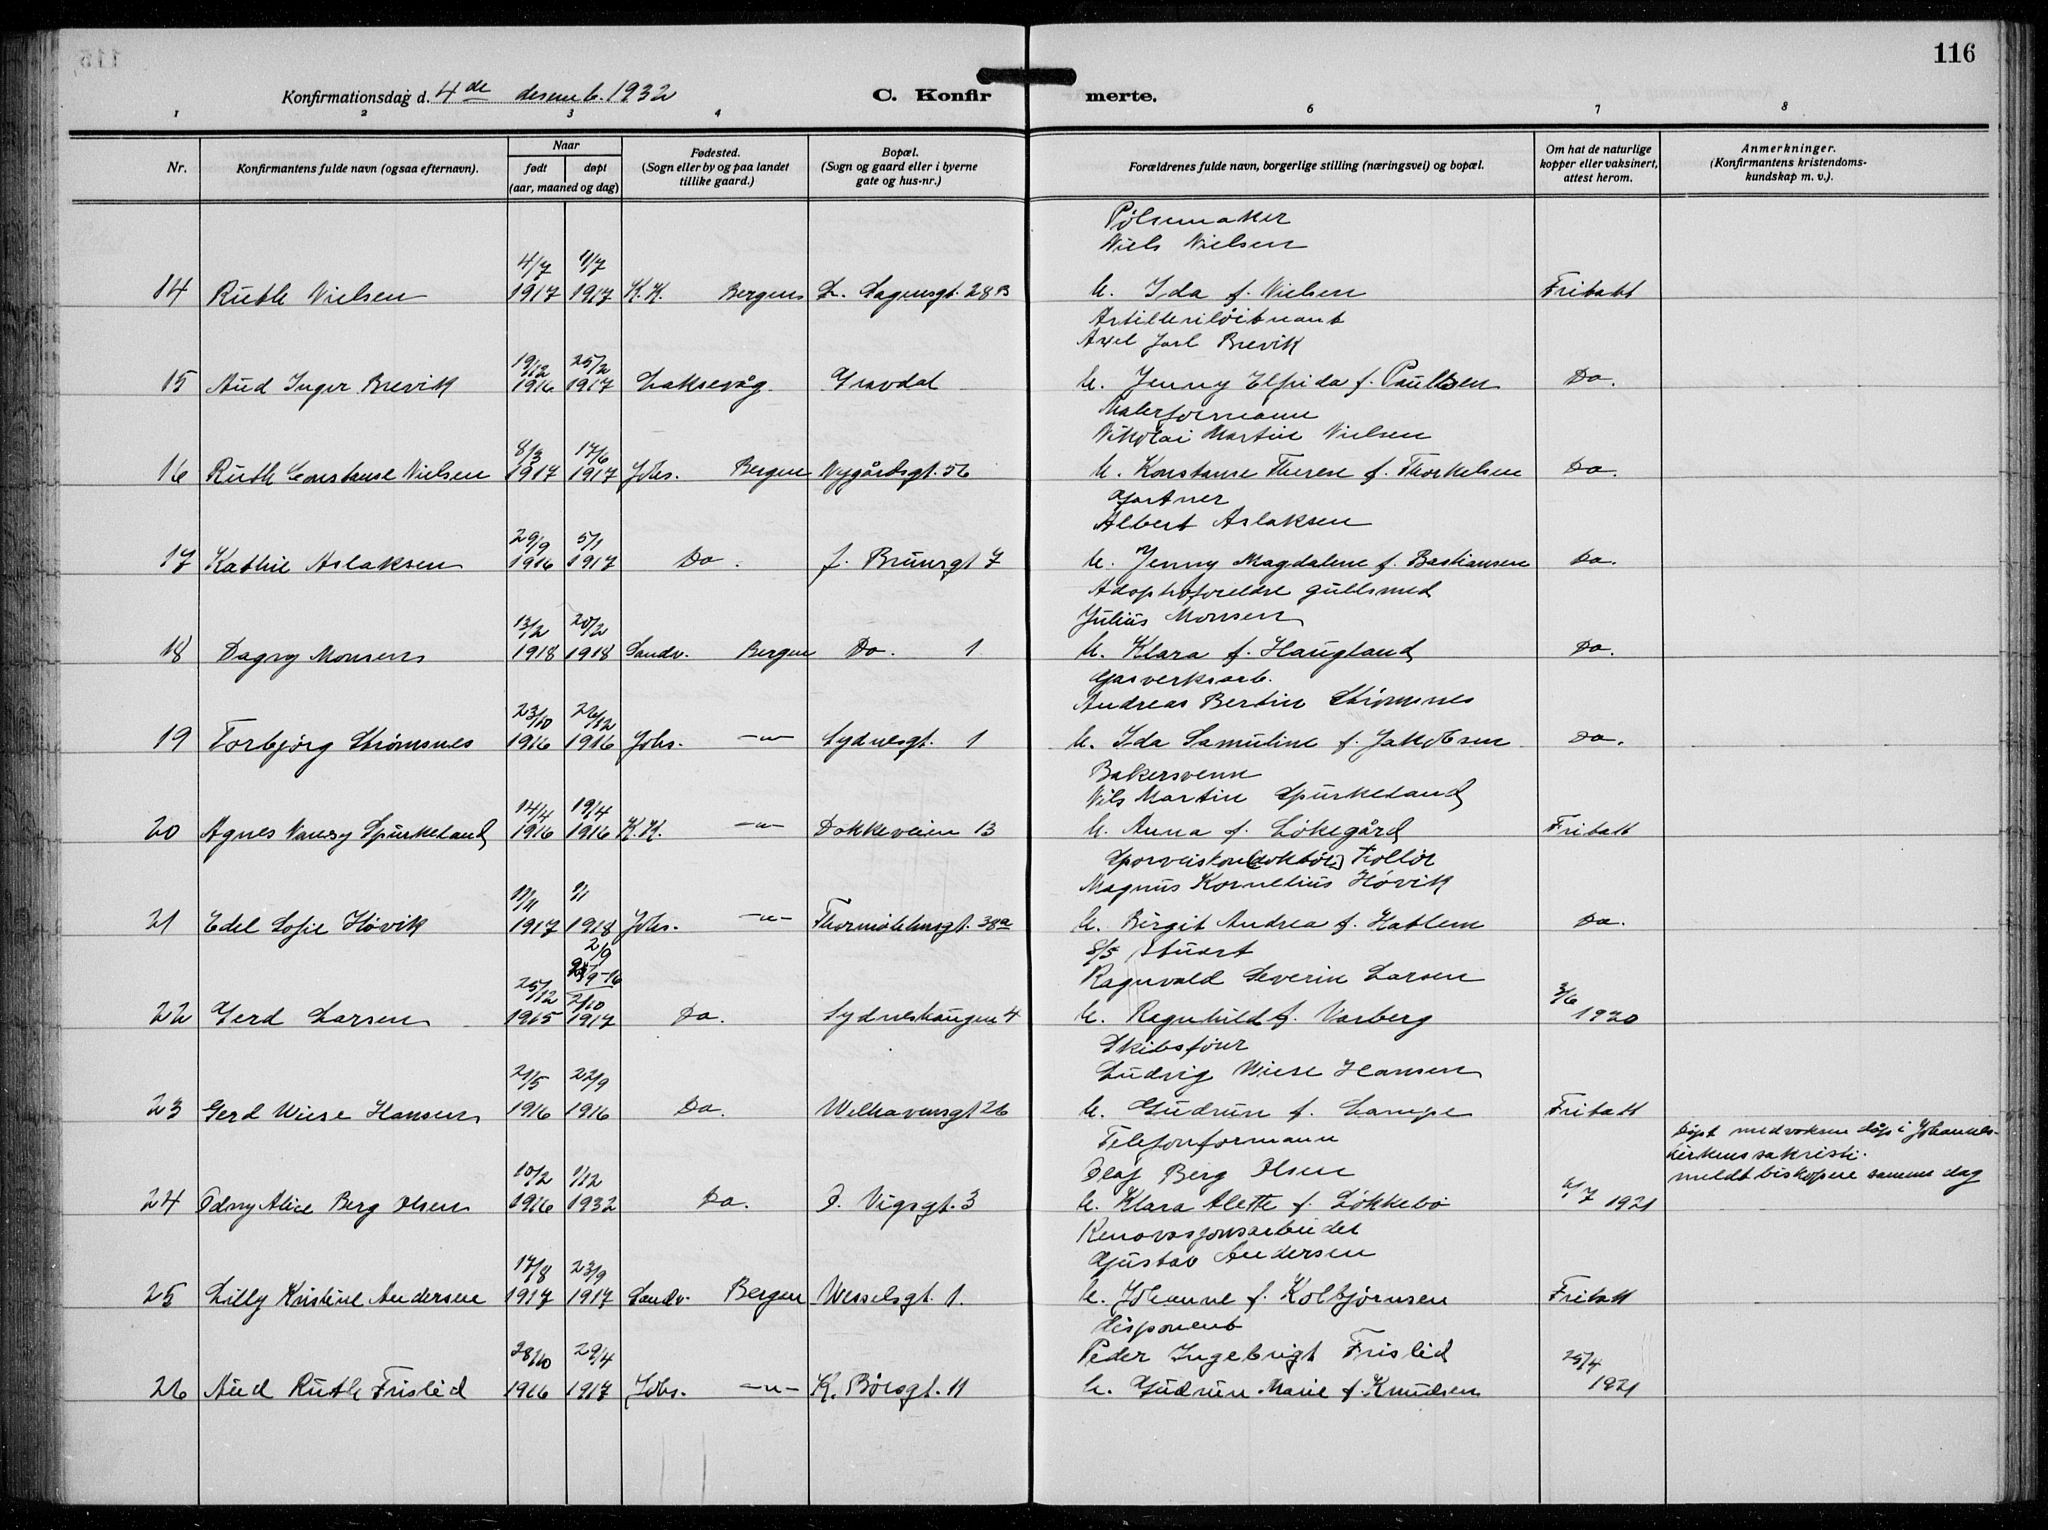 116
Konfirmationsdag d. 4de desemb. 1932
C. Konfirmerte.
1 2 3 4 5 6 7 8
Nr.
Konfirmantens fulde navn (ogsaa efternavn).
Naar
født
døpt
(aar, maaned og dag)
Fødested.
(Sogn eller by og paa landet
tillike gaard.)
Bopæl.
(Sogn og gaard eller i byerne
gate og hus-nr.)
Forældrenes fulde navn, borgerlige stilling (næringsvei) og bopæl.
Om hat de naturlige
kopper eller vaksinert,
attest herom.
Anmerkninger.
(Konfirmantens kristendoms-
kundskap m. v.).
Pølsemaker
Niels Nielsen
4/7 1/7
14 Ruth Nielsen 1917 1917 K.K. Bergen L. Sagensgt. 28B h. Ida f. Nielsen Fritatt
Artilleriløitnant
Axel Jarl Brevik
19/12 25/2
15 Aud Inger Brevik 1916 1917 Laksevåg Gravdal h. Jenny Elfrida f. Paulsen Do.
Malerformann
Nikolai Martin Nielsen
8/3 17/6
16 Ruth Constanse Nielsen 1917 1917 Johs. Bergen Nygårdsgt. 56 h. Konstanse Therese f. Thorkelsen Do.
Gartner
Albert Aslaksen
29/9 5/1
17 Kathie Aslaksen 1916 1917 Do. J. Brunsgt 7 h. Jenny Magdalene f. Bastiansen Do.
Adoptivforeldre gullsmed
Julius Monsen
13/2 20/2
18 Dagny Monsen 1918 1918 Sandv. Bergen Do. 1 h. Klara f. Haugland Do.
Gasverksarb.
Andreas Bertin Strømsnes
23/10 26/12
19 Torbjørg Strømsnes 1916 1916 Johs. -"- Sydnesgt. 1 h. Ida Samuline f. Jakobsen Do.
Bakersvenn
Nils Martin Spurkeland
14/4 19/4
20 Agnes Nancy Spurkeland 1916 1916 K.K. -"- Dokkeveien 13 h. Anna f. Løkegård Fritatt
Magnus Kornelius Høvik
11/11 1/1
21 Edel Sofie Høvik 1917 1918 Johs. -"- Thormøhlensgt. 38a h. Birgit Andrea f. Hatlem Do.
2/9
S/S Stuert
Ragnvald Severin Larsen
25/12 2/10 3/6
22 Gerd Larsen 1915 1917 Do. Sydneshaugen 4 h. Ragnhild f. Varberg 1920
Skibsfører
Ludvig Wiese Hansen
21/5 22/9
23 Gerd Wiese Hansen 1916 1916 Do. Welhavensgt 26 h. Gudrun f. Lampe Fritatt
Telefonformann
Olaf Berg Olsen
døpt med voksen dåp i Johannes-
kirkens sakristi.
meldt biskopen samme dag
10/2 1/12
24 Odny Alice Berg Olsen 1916 1932 Do. O. Vigsgt. 3 h. Klara Alette f. Løkkebø 1921
Renovasjonsarbeider
Gustav Andersen
17/8 23/9
25 Lilly Kristine Andersen 1917 1917 Sandv. Bergen Wesselsgt. 1. h. Johanne f. Kolbjørnsen Fritatt
disponent
Peder Ingebrigt Frislid
28/10 29/4 25/4
26 Aud Ruth Frislid 1916 1917 Johs. -"- K. Børsgt. 11 h. Gudrun Marie f. Knudsen 1921